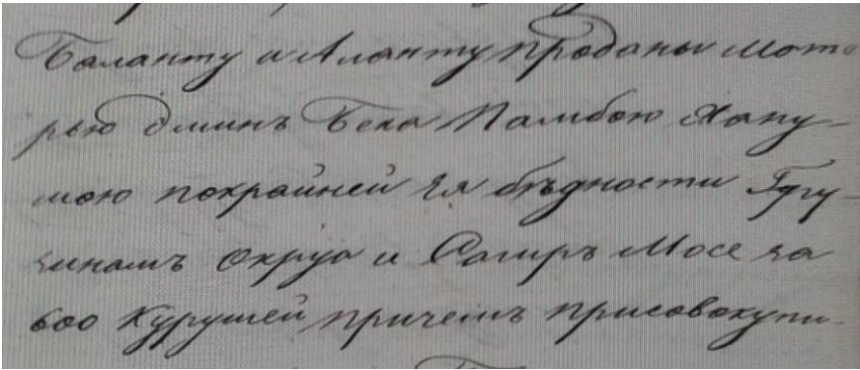 Баланту и Аланту проданы мате
рью Эминъ Бека Памбою Хану-
мою покрайней ея бѣдности Гргу
чинамъ Окруа и Сагиръ Мосе за
600 Курушей причемъ присовокупи-